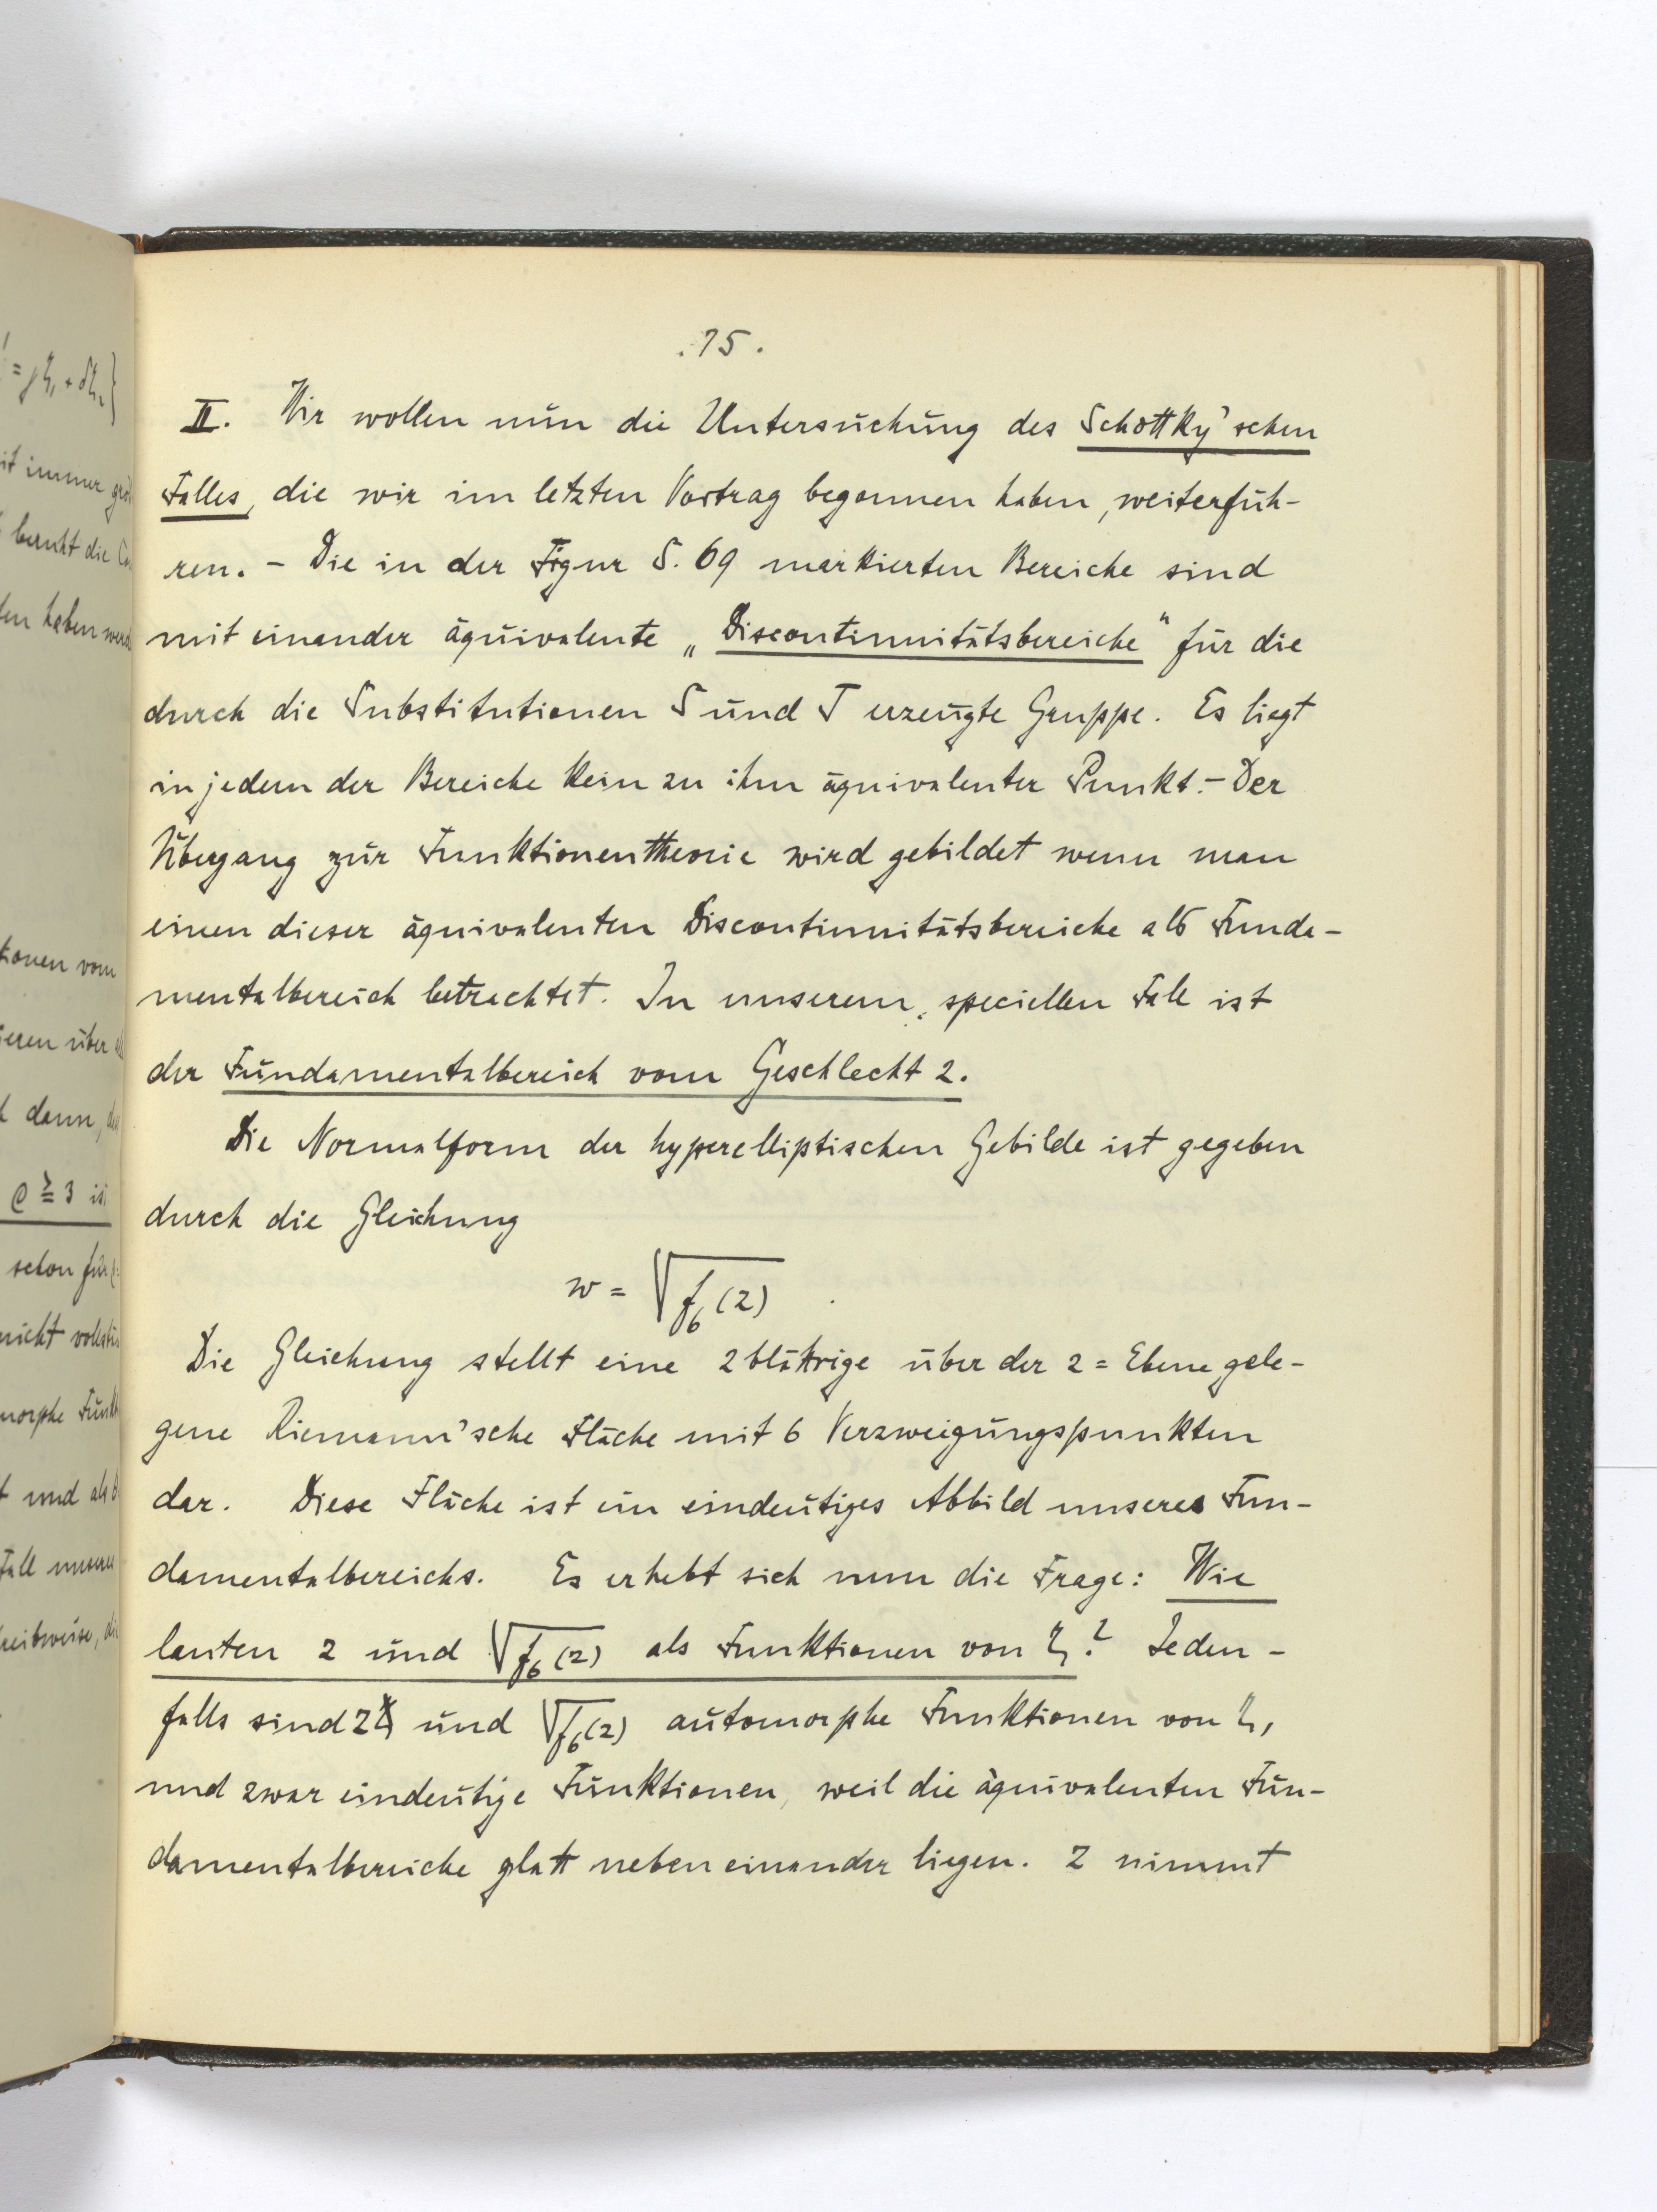 .75.
II. Wir wollen nun die Untersuchung des Schottky'schen
Falles, die wir im letzten Vortrag begonnen haben, weiterfüh-
ren. – Die in der Figur S. 69 markierten Bereiche sind
mit einander äquivalente „Discontinuitätsbereiche“ für die
durch die Substitutionen S und T erzeugte Gruppe. Es liegt
in jedem der Bereiche kein zu ihm äquivalenter Punkt. – Der
Übergang zur Funktionentheorie wird gebildet wenn man
einen dieser äquivalenten Discontinuitätsbereiche als Funda-
mentalbereich betrachtet. In unserem speciellen Fall ist
der Fundamentalbereich vom Geschlecht 2.
Die Normalform der hyperelliptischen Gebilde ist gegeben
durch die Gleichung
w = √f₆(z) .
Die Gleichung stellt eine 2 blättrige über der z = Ebene gele-
gene Riemann'sche Fläche mit 6 Verzweigungspunkten
dar. Diese Fläche ist ein eindeutiges Abbild unseres Fun-
damentalbereichs. Es erhebt sich nun die Frage: Wie
lauten z und √f₆(z) als Funktionen von ζ? Jeden-
falls sind z und √f₆(z) automorphe Funktionen von ζ,
und zwar eindeutige Funktionen, weil die äquivalenten Fun-
damentalbereiche glatt neben einander liegen. z nimmt
= γζ₁ + δζ₂}
it immer
beruht die
haben
vom
über
dann,
≧ 3
schon für
nicht
Funk
und als
Fall unseres